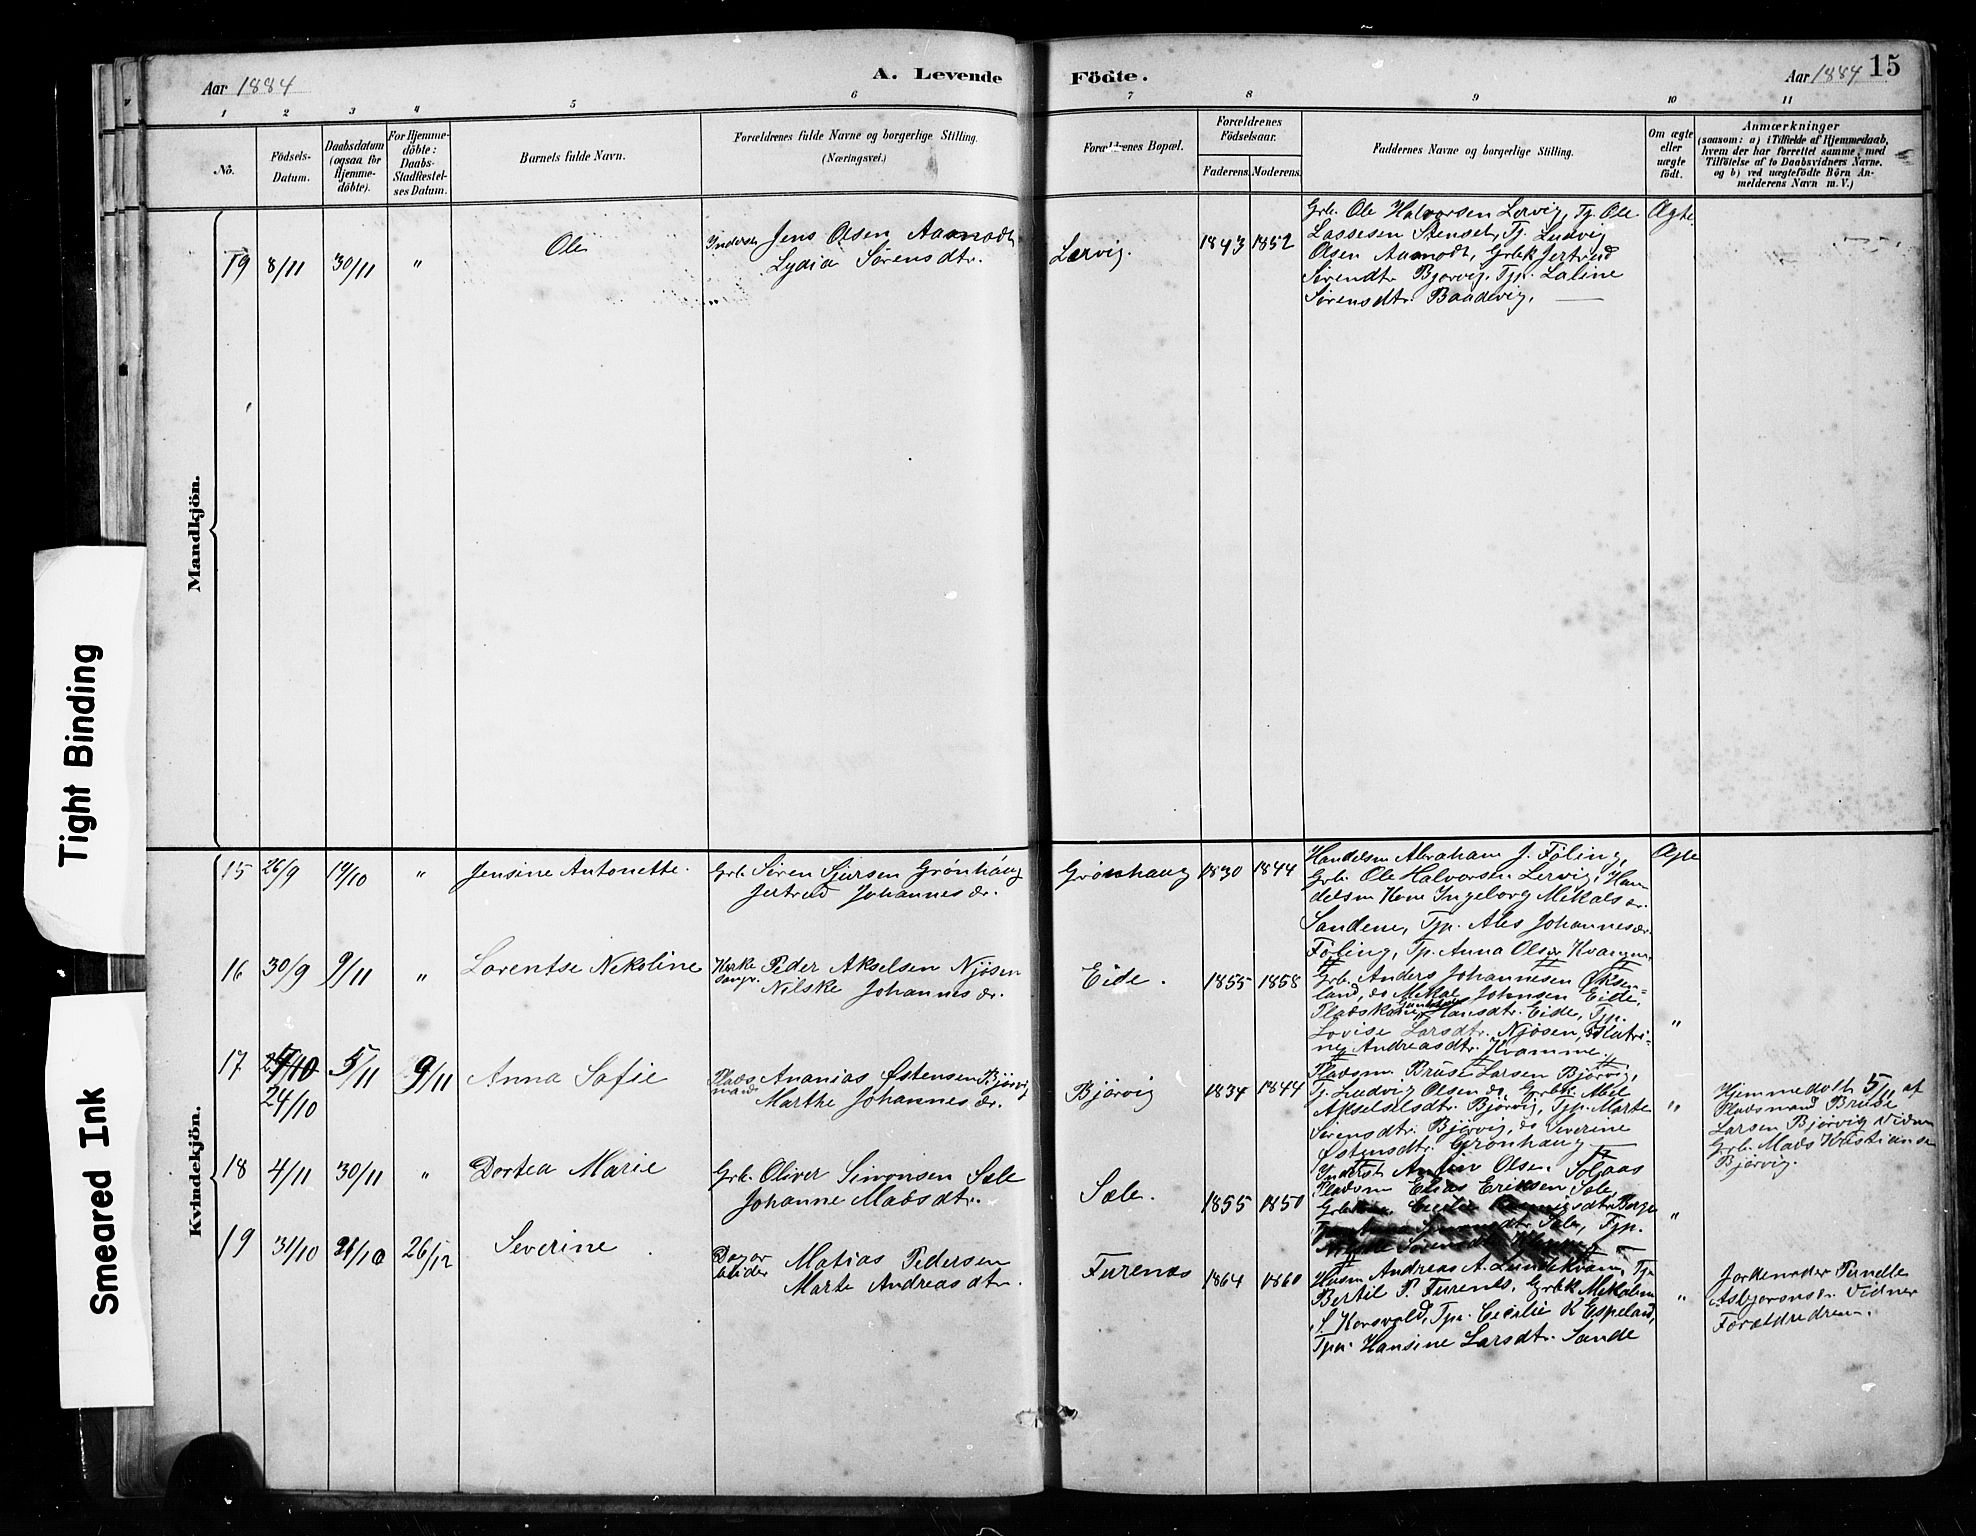 Aar 1884
A. Levende
Födte.
Aar 1884
15
1 2 3 4 5 6 7 8 9 10 11
No.
Födsels-
Datum.
Daabsdatum
(ogsaa for
Hjemme-
döbte).
For Hjemme-
döbte:
Daabs-
Stadfæstel-
ses Datum.
Barnets fulde Navn.
Forældrenes fulde Navne og borgerlige Stilling.
(Næringsvei.)
Forældrenes Bopæl.
Forældrenes
Födselsaar.
Faderens. Moderens.
Faddernes Navne og borgerlige Stilling.
Om ægte
eller
uægte
födt.
Anmærkninger
(saasom: a) i Tilfælde af Hjemmedaab,
hvem der har forrettet samme, med
Tilföielse af to Daabsvidners Navne.
og b) ved uægtefödte Börn An-
melderens Navn m. V.)
Mandkjön.
19 8/11 30/11 "
Ole
Inderst Jens Olsen Aamodt
Lydia Sørensdtr.
"
Lervig.
1843 1852
Grb. Ole Halvorsen Lervig, Tj. Ole
Lassesen Stenset, Tj. Ludvig
Olsen Aamodt, Grbk Jertrud
Sørendtr. Bjørvig, Tjp. Laline
Sørensdtr. Baadevig.
Ægte
Kvindekjön.
15 26/9 19/10 "
Jensine Antonette.
Grb. Søren Sjursen Grønhaug
Jertrud Johannesdr.
Grønhaug
1830 1844
Handelsm Abraham J. Föling,
Grb. Ole Halvorsen Lervig, Han
delsm Kone Ingeborg Mikalsdr.
Sandene, Tjp. Ales Johannesdr.
Föling, Tp. Anna Olsdr
Ægte
16 30/9 9/11 "
Lorentse Nekoline
Peder Akselsen Njøsen
Nilske Johannesdr.
Eide.
1855 1858
Grb. Anders Johannesen Øksen-
land, do Mikal Johnsen Eide,
Hansdtr. Eide, Tjp.
Lovise Larsdtr. Njøsen, Katri-
ne Andreasdtr. Kramme.
"
17
24/10
5/11 9/11
Anna Sofie
Plads
mand Ananias Østensen Bjørvig
Marthe Johannesdr.
Bjørvig
1834 1844
Pladsm. Kruse Larsen Bjørvig,
Tj. Ludvig Olsen do, Grbk Abel
Akselsdtr. Bjørvig, Tjp. Marte
Sørensdtr. Bjørvig, do Severine
Østensdtr. Grønhaug
"
Hjemmedöbt 5/11 af
Pladsmand Kruse
Larsen Bjørvig Vidner
Grb. Mads Kristiansen
Bjørvig.
18 4/11 30/11 "
Dortea Marie
Grb. Oliver Simonsen Sæle
Johanne Madsdtr.
Sæle.
1855 1850
Inderst Olsen Solaas
Pladsm Elias Eriksen Sæle,
Cecilie
Sæle, Tjp.
"
19 31/10 26/12
Severine
Dagar
beider Matias Pedersen
Marte Andreasdtr.
Furenes
1864 1860
Husm Andreas A. Lundekvam, Tj.
Bertil P. Furenes, Grbk Mikaline
S. Korsvold, Tpi. Cecilie K Espeland,
Tpi. Hansine Larsdtr. Sande
"
Jordemoder Pernelle
Asbjørnsdr. Vidner
Forældrerne.
Tight Binding
Smeared Ink